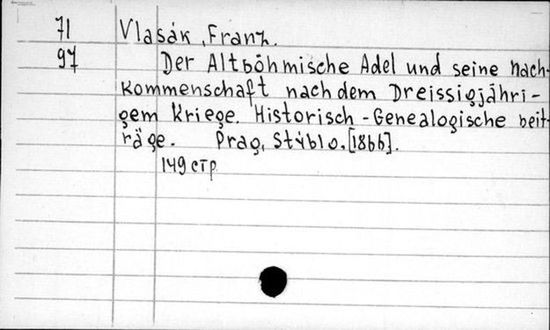 71 Vlasák, Franz.
97 Der Altböhmische Adel und seine Nach-
kommenschaft nach dem Dreissigjähri-
gem Kriege. Historisch-Genealogische beit-
räge. Prag, Stýblo, [1866].
149 стр